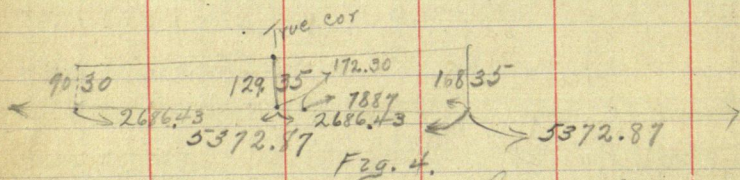 True cor
90 30
129 35
172.30
168 35
7887
2686.43
2686.43
5372.87
5372.87
Fig. 4.